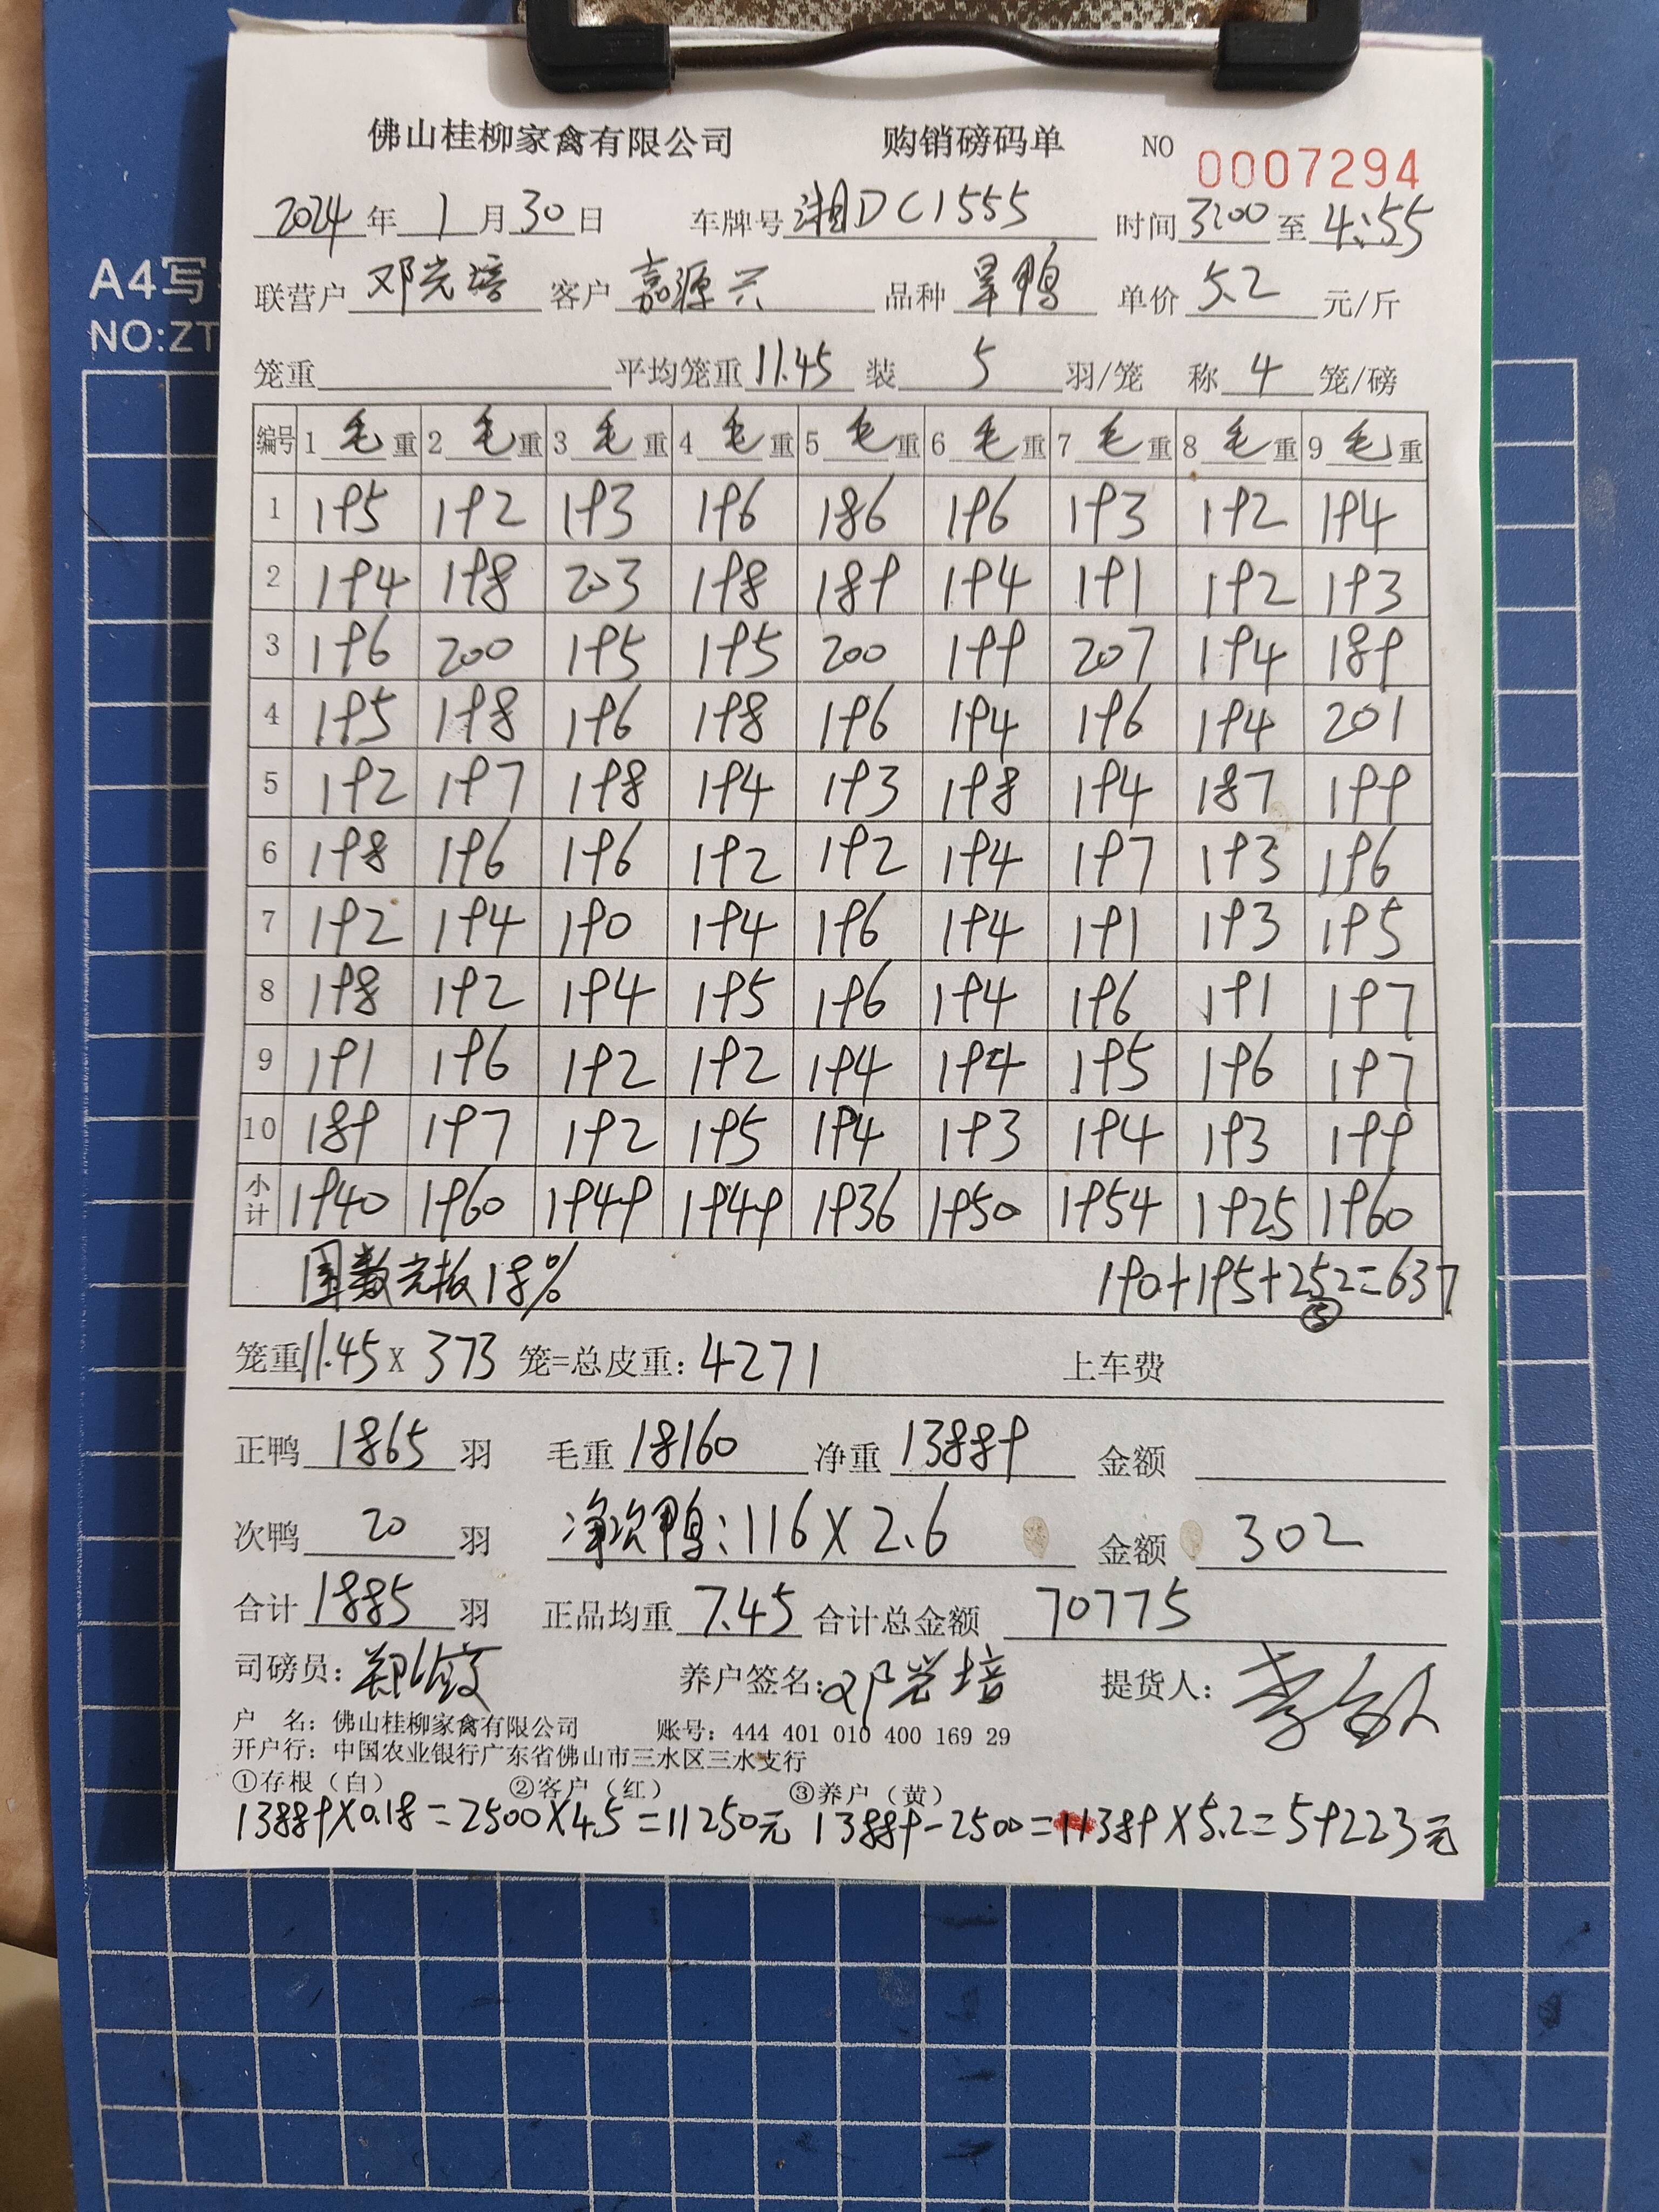 A4写
NO:ZT
佛山桂柳家禽有限公司 购销磅码单 NO 0007294
2024年1月30日 车牌号湘DC1555 时间3:00至4:55
联营户 邓光培 客户 嘉源兴 品种 旱鸭 单价 5.2 元/斤
笼重 平均笼重11.45 装 5 羽/笼 称 4 笼/磅
编号 1毛重 2毛重 3毛重 4毛重 5毛重 6毛重 7毛重 8毛重 9毛重
1 195 192 193 196 186 196 193 192 194
2 194 198 203 198 189 194 191 192 193
3 196 200 195 195 200 199 207 194 189
4 195 198 196 198 196 194 196 194 201
5 192 197 198 194 193 198 194 187 199
6 198 196 196 192 192 194 197 193 196
7 192 194 190 194 196 194 191 193 195
8 198 192 194 195 196 194 196 191 197
9 191 196 192 192 194 194 195 196 197
10 189 197 192 195 194 193 194 193 199
小计 1940 1960 1949 1949 1936 1950 1954 1925 1960
围数光板18% 190+195+252=637
⑤
笼重11.45X 373 笼=总皮重:4271 上车费
正鸭 1865 羽 毛重 18160 净重 13889 金额
次鸭 20 羽 净次鸭:116X2.6 金额 302
合计 1885 羽 正品均重 7.45 合计总金额 70775
司磅员: 养户签名:邓光培 提货人:
户 名:佛山桂柳家禽有限公司 账号:444 401 010 400 169 29
开户行:中国农业银行广东省佛山市三水区三水支行
①存根(白) ②客户(红) ③养户(黄)
13889X0.18=2500X4.5=11250元 13889-2500=11389X5.2=59223元